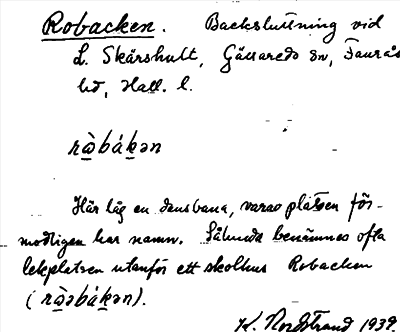 Robacken. Backsluttning vid
L. Skärshult, Gällareds sn, Faurås
hd, Hall. l.
rò̲bák̲ən
Här låg en dansbana, varav platsen för-
modligen har namn. Således benämnes ofta
lekplatsen utanför ett skolhus Robacken
(rò̲əbák̲ən).
K. Nordstrand 1939